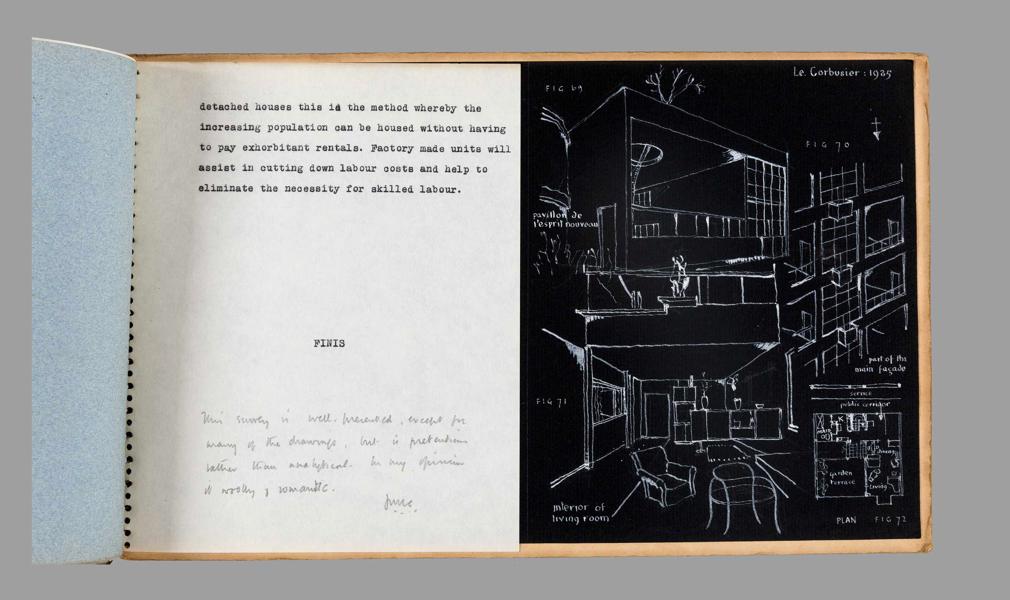 detached houses this is the method whereby the
increasing population can be housed without having
to pay exhorbitant rentals. Factory made units will
assist in cutting down labour costs and help to
eliminate the necessity for skilled labour.
FINIS
This survey is well presented, except for
many of the drawings, but is pretentious
rather than analytical. In my opinion
it woolly & romantic.
Le. Corbusier : 1925
FIG 69
FIG 70
pavillon de
l'esprit nouveau
part of the
main façade
service
public corridor
FIG 71
garden
terrace
living
interior of
living room
PLAN FIG 72